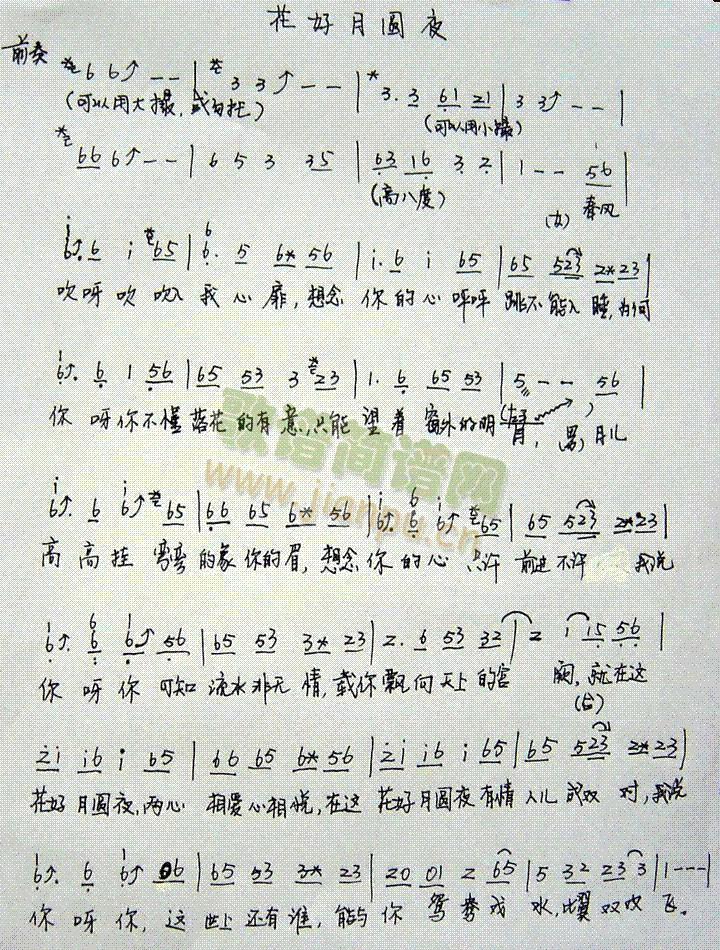 花好月圆夜
前奏 6 6 - - | 3 3 - - | 3. 3 61 21 | 3 3 - - |
(可以用大撮,或勾托) (可以用小撮)
66 6 - - | 6 5 3 35 | 63 16 3 2 | 1 - - 56 |
(高八度) (女) 春风
6. 6 i 65 | 6. 5 6* 56 | i. 6 i 65 | 65 523 2*23 |
吹呀吹 吹入 我心扉,想念 你的心 呯呯 跳不能入睡,为何
6. 6 1 56 | 65 53 3 23 | 1. 6 65 53 | 5 - - 56 |
你 呀你不懂 落花的有意,只能 望着 窗外的明月, (男) 月儿
歌谱简谱网
www.jianpu.cn
6. 6 6 65 | 66 65 6* 56 | 6. 6 6 65 | 65 523 2*23 |
高 高挂 弯弯的象你的眉,想念 你的心 只许 前进不许 我说
6. 6 6 56 | 65 53 3* 23 | 2. 6 53 32 | 2 i 15 56 |
你 呀你 可知 流水非无 情,载你飘向天上的宫 阙,就在这
(合)
2i i6 i 65 | 66 65 6* 56 | 2i i6 i 65 | 65 523 2*23 |
花好月圆夜,两心 相爱心相悦,在这 花好月圆夜有情人儿成双 对,我说
6. 6 6 06 | 65 53 3* 23 | 20 01 2 65 | 5 32 23 3 | 1 - - - |
你 呀你,这 世上还有谁,能与你 鸳鸯戏 水,比翼双双飞。